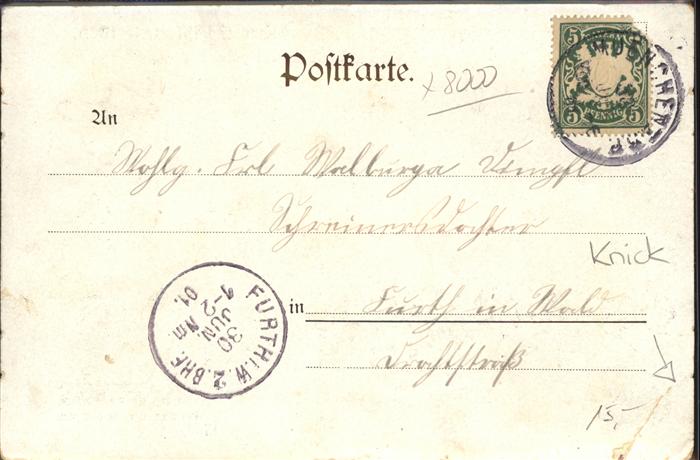 Postkarte.
x 8000
5 5
MUENCHEN
5 PFENNIG 5
An
Wohlg. Frl. Walburga
Schreinerstochter
Knick
FURTH I. W. 2. BHF.
30 JUN. Nm 1-2 01.
in Furth in Wald
15,-